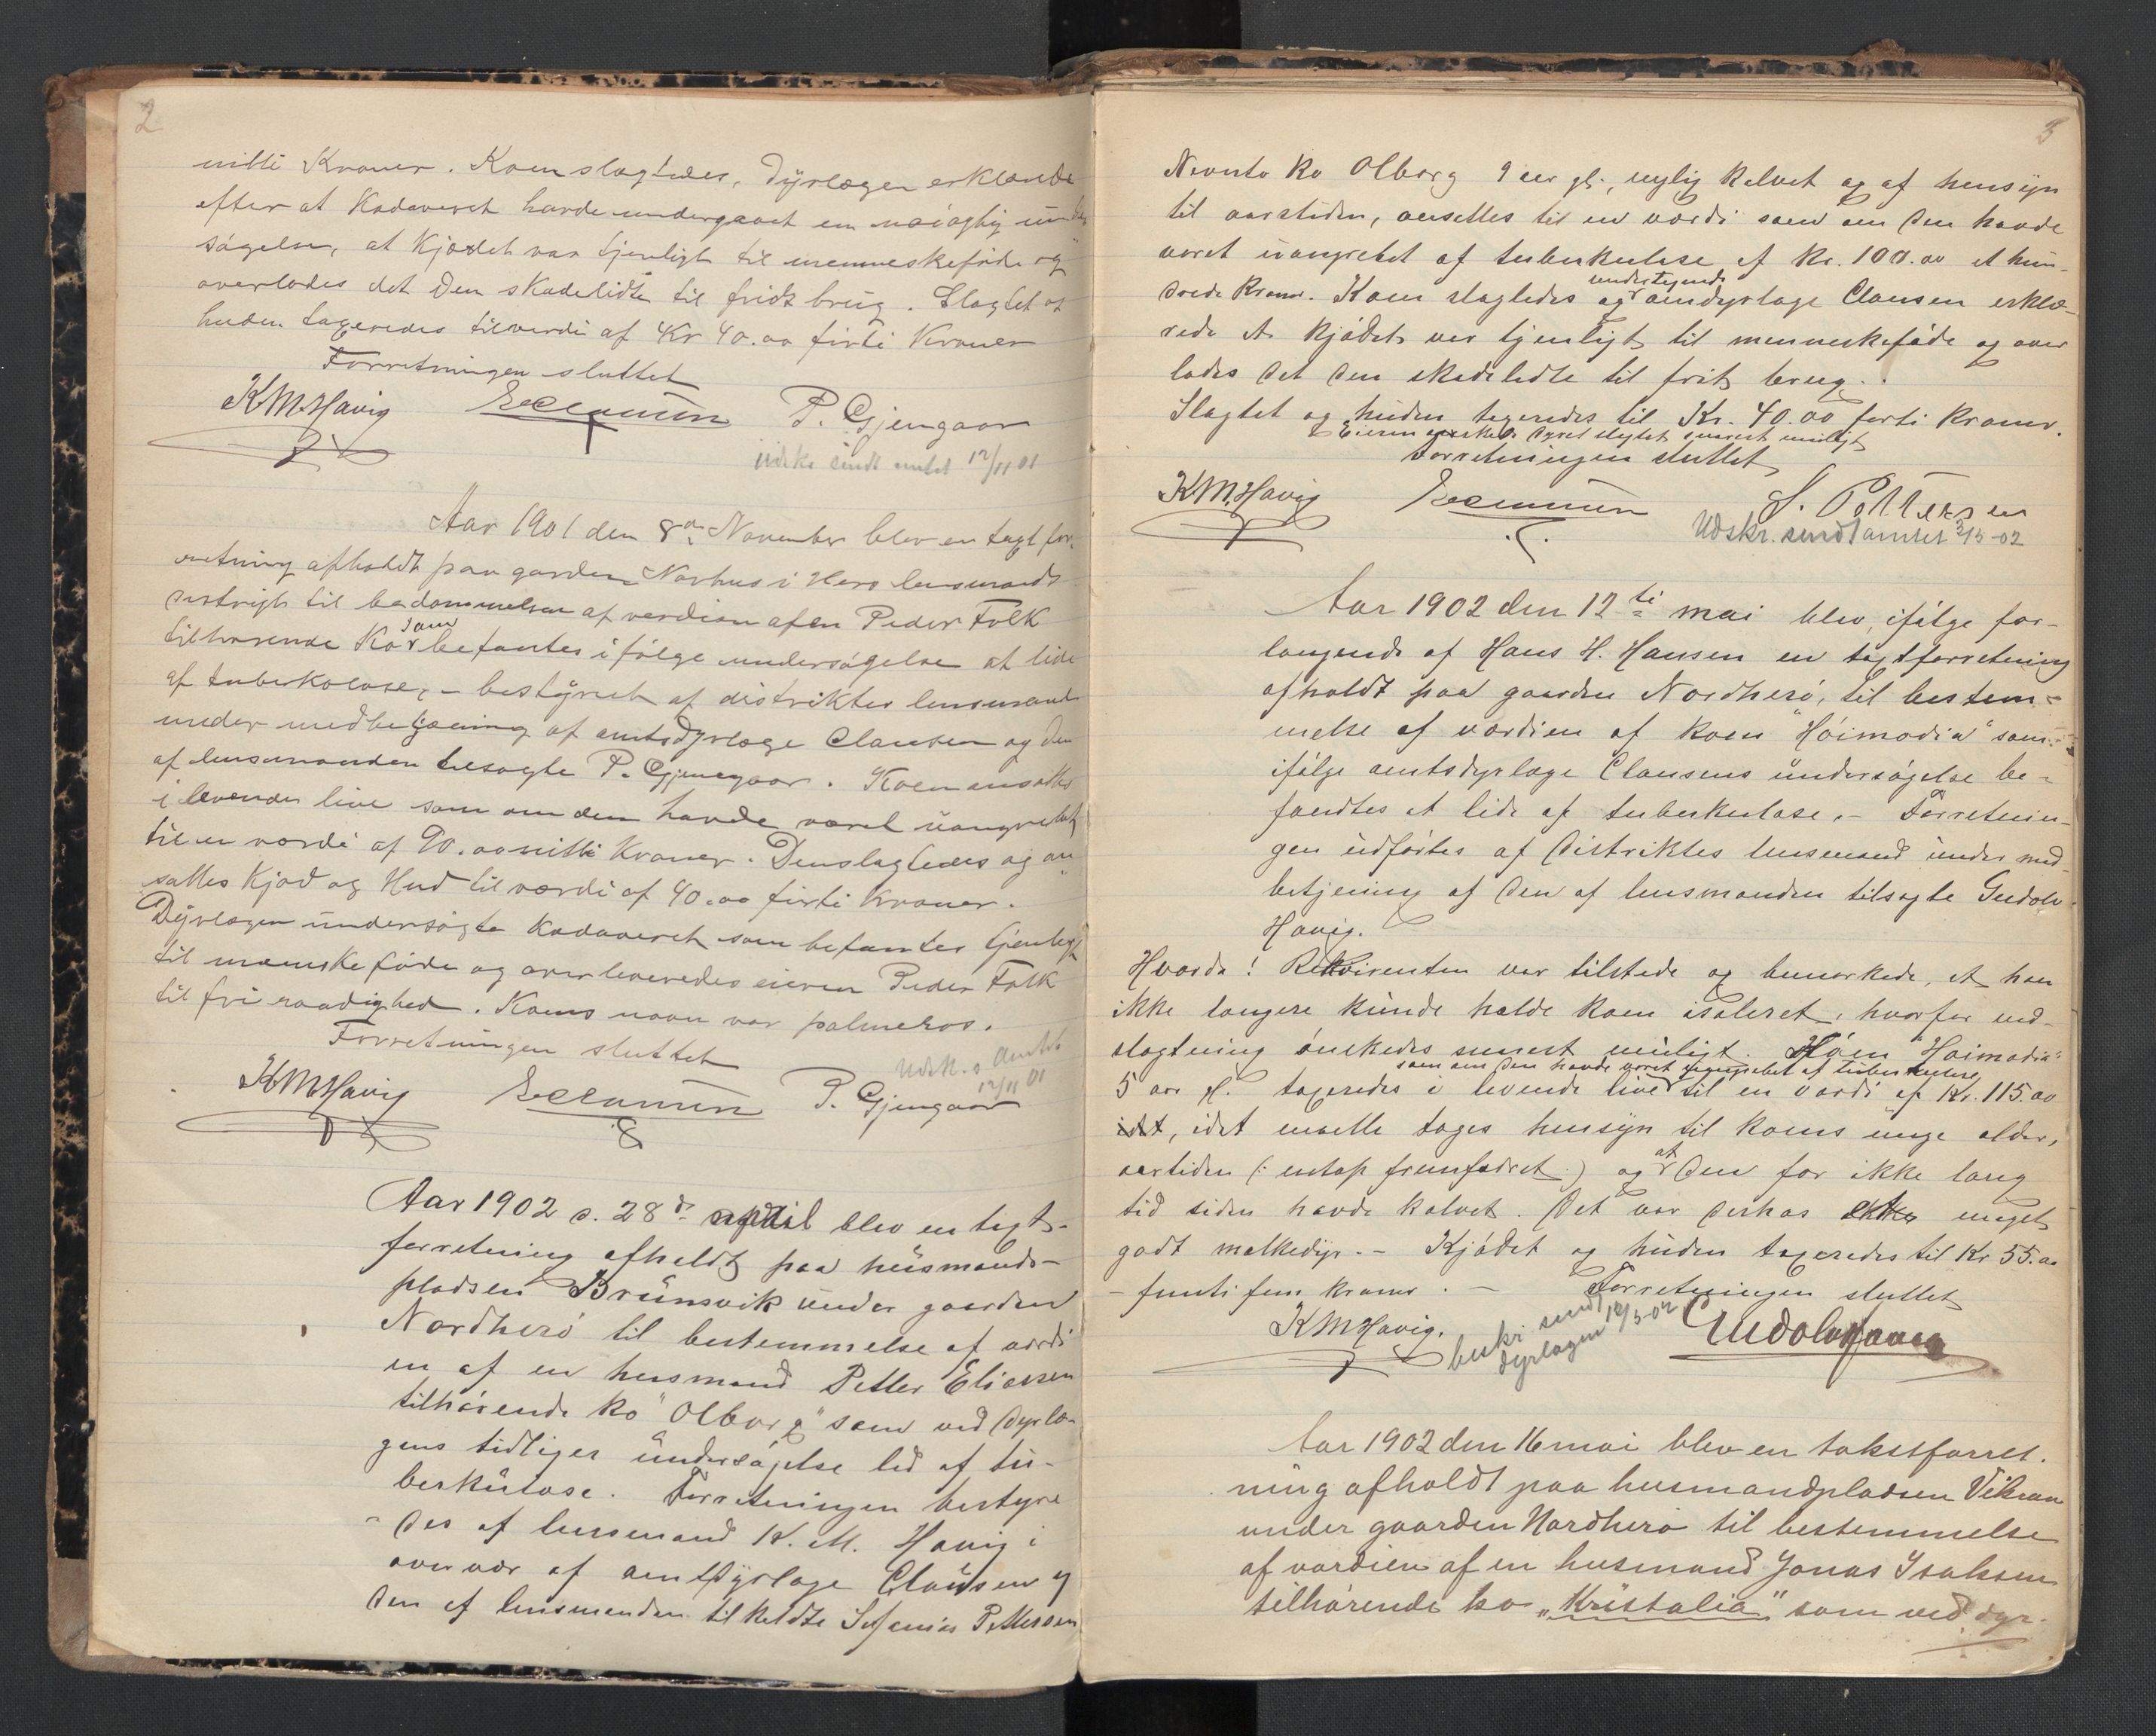 2
nitti Kroner. Koen slagtedes, Dyrlægen erklærede
efter at Kadaveret havde undergaaet en nøiagtig under
søgelse, at Kjødet var tjenligt til menneskeføde og
overlodes det Den skadelidte til fridt brug. Slagtet og
huden taxeredes til verdi af Kr 40.00 firti Kroner
Forretningen sluttet
KMHavig EClausen P. Gjengaar
Udskr. sendt amtet 12/11 01
Aar 1901 den 8de November blev en taxt for-
retning afholdt paa garden Nærhus i Herø lensmands
distrigt til bedømmelsen af verdien af en Peder Falk
tilhørende Ko som befantes i følge undersøgelse at lide
af tuberkolose, - bestyret af distriktes lensmand
under medbetjæning af amtsdyrlæge Clausen og den
af lensmanden tilsagte P. Gjengaar. Koen ansattes
i levende live som om den havde været uangrebet
til en værdi af 90.00 nitti Kroner. Den slagtedes og an
sattes Kjød og Hud til værdi af 40.00 firti Kroner.
Dyrlægen undersøgte Kadaveret som befantes tjenligt
til menneske føde og overleveredes eieren Peder Falk
til fri raadighed. Koens navn var palmeros.
Forretningen sluttet
Udsk. s. Amtet
12/11 01
KMHavig EClausen P. Gjengaar
Aar 1902 d. 28de april blev en tagt-
forretning afholdt paa husmands-
pladsen Brunsvik under gaarden
Nordherø til bestemmelse af værdi
en af en husmand Petter Eliassen
tilhørende ko "Olborg" som ved dyrlæ-
gens tidliger undersøgelse led af tu-
berkulose. Forretningen bestyre
des af lensmand K. M. Havig i
overvær af amtsdyrlæge Clausen og
den af lensmanden tilkaldte Pettersen
3
Nevnte ko Olborg 9 aar gl., nylig kalvet og af hensyn
til aarstiden, ansettes til en værdi som om den havde
været uangrebet af tuberkulose af Kr. 100.00 et hun-
drede Kroner. Koen slagtedes og undertegnede amdyrlæge Clausen erklæ-
rede at kjødet var tjenligt til menneskeføde og over
lodes det den skadelidte til frit brug.
Slagtet og huden taxeredes til Kr. 40.00 førti kroner.
Eieren ønsked dyret slagtet snarest muligt
Forretningen sluttet
KM.Havig EClausen S. Pettersen
Udskr. sendt amtet 3/5-02
Aar 1902 den 12te mai blev, ifølge for-
langende af Hans H. Hansen en taxtforretning
afholdt paa gaarden Nordherø, til bestem-
melse af værdien af koen "Høimodia" som
ifølge amtsdyrlæge Clausens undersøgelse be-
fandtes at lide af tuberkulose. - Forretnin-
gen udførtes af distriktes lensmand under med-
betjening af den af lensmanden tilsagte Gudolv
Havig.
Hvorda! Rekvirenten var tilstede og bemærkede, at han
ikke længere kunde holde koen isoleret, hvorfor ned-
slagtning ønskedes snarest muligt. Koen "Høimodia"
som om den havde været uangrebet af tuberkulose
5 aar gl. taxeredes i levende live til en værdi af Kr. 115.00
idet, idet maatte tages hensyn til koens unge alder,
aartiden (: netop fremfødret :) og at den for ikke lang
tid siden havde kalvet. Det var derhos meget
godt melkedyr. - Kjødet og huden taxeredes til Kr 55.00
- femti fem kroner. - Forretningen sluttet
KMHavig. bekr. sendt dyrlægen 12/5-02 Gudolv Havig
Aar 1902 den 16 mai blev en takstforret.
ning afholdt paa husmandpladsen Vikran
under gaarden Nordherø til bestemmelse
af værdien af en husmand Jonas Isaksen
tilhørende ko "Kristalia" som ved dyr-